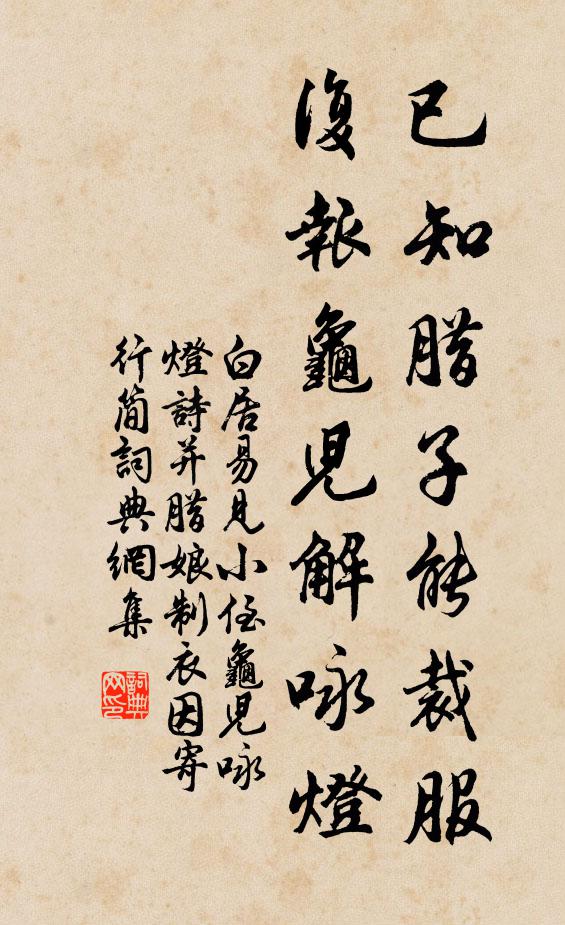 已知腊子能裁服
復報龜兒解咏燈
白居易見小侄龜兒咏
燈詩并腊娘制衣因寄
行簡詞典網集
詞典
网印